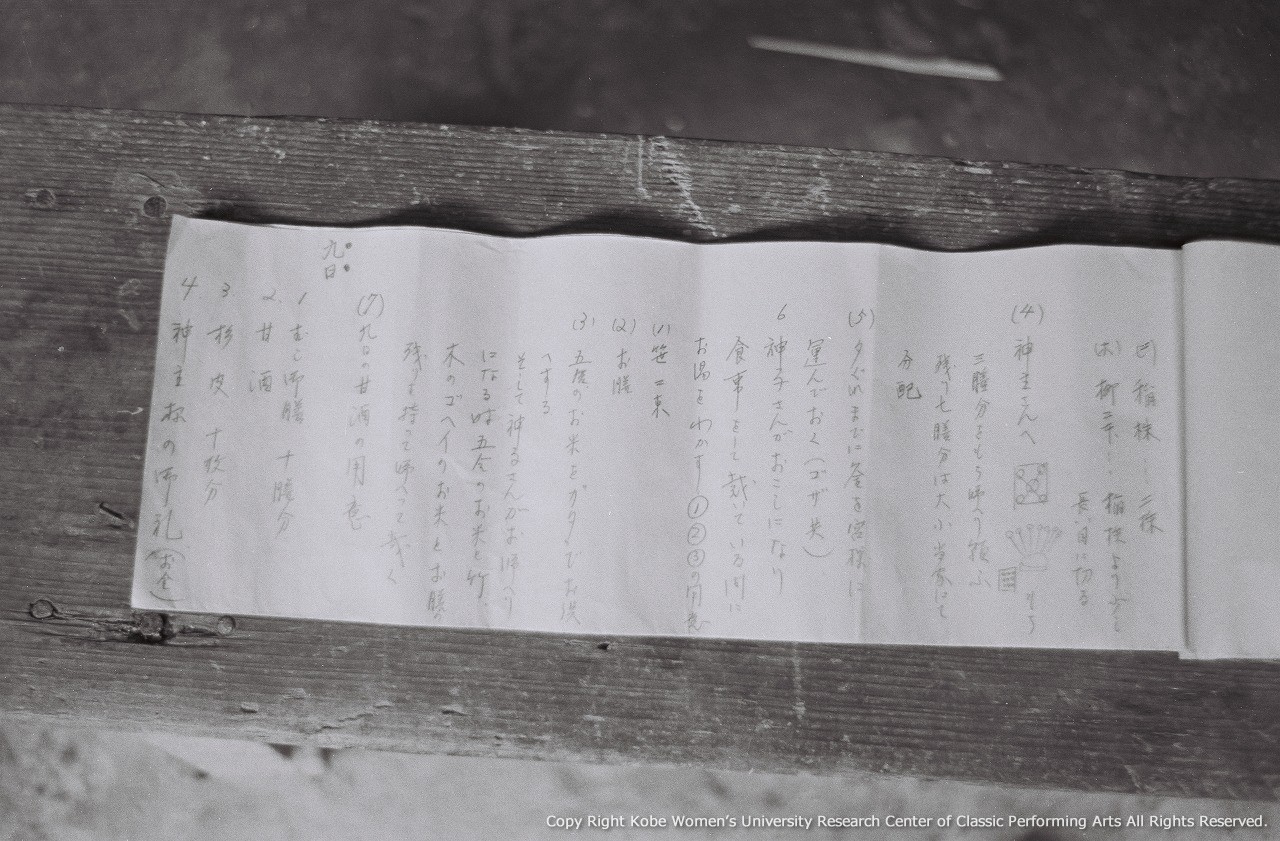 稲株……二株
(ホ) 柳二本…稲株より少し
長い目に切る
(4) 神主さんへ
三膳分をもち帰り願ふ
残り七膳分は大小当家にて
分配
(5) 夕ぐれまでに釜を宮様に
運んでおく(ゴザ共)
6 神子さんがおこしになり
食事をして戴いている間に
お湯をわかす①②③の用意
(1) 笹二束
(2) お膳
(3) 五合のお米を
へする
そして神子さんがお帰へり
になる時は五合のお米と
木のゴヘイのお夫とお膳の
残りを持って帰へって戴く
(7) 九日の甘酒の用意
九日
1 むし御膳 十膳分
2. 甘酒
3 杉皮 十枚分
4 神主様の御礼(お金)
Copy Right Kobe Women's University Research Center of Classic Performing Arts All Rights Reserved.